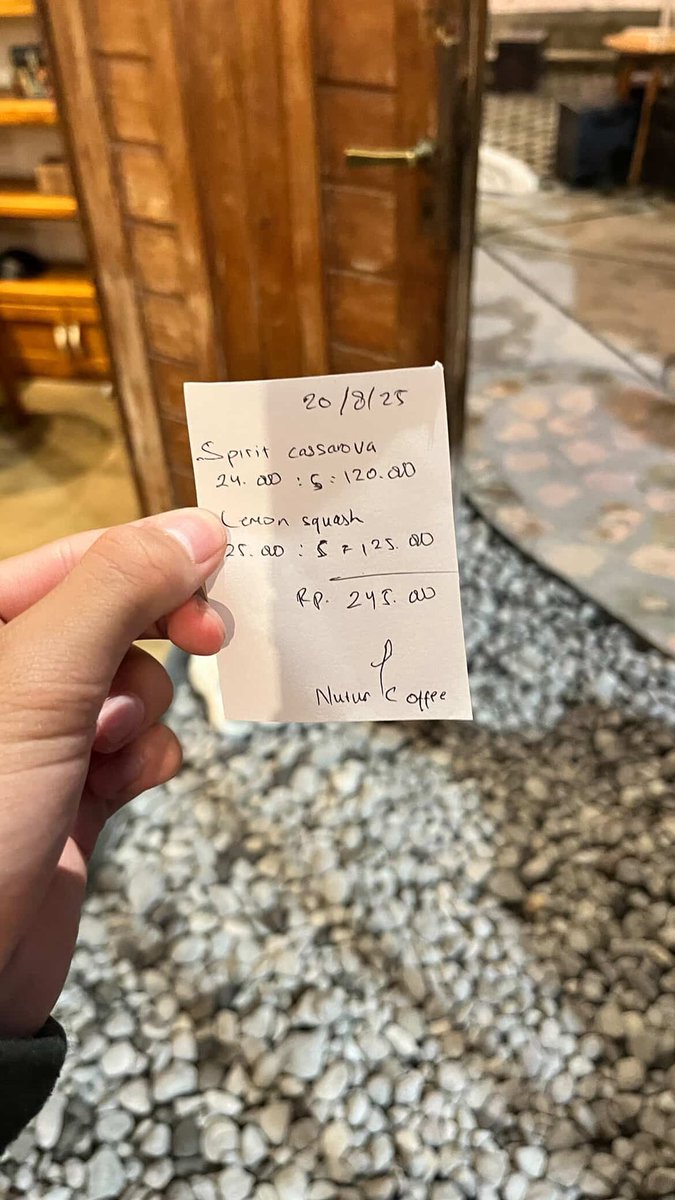 20/8/25
Spirit cassanova
24.00 : 5 : 120.00
Lemon squash
25.00 : 5 = 125.00
Rp. 245.00
Nutur Coffee